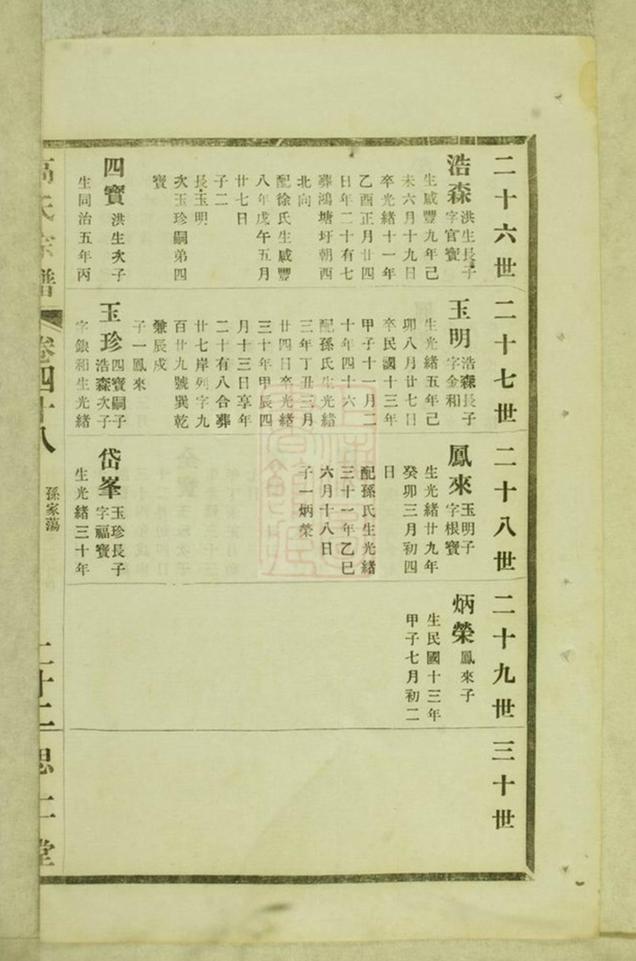 二十六世
浩森 洪生長子
字官寶
生咸豐九年己
未六月十九日
卒光緒十一年
乙酉正月廿四
日年二十有七
葬鴻塘圩朝西
北向
配徐氏生咸豐
八年戊午五月
廿七日
子二
長玉明
次玉珍嗣弟四
寶
四寶 洪生次子
生同治五年丙
二十七世
玉明 浩森長子
字金和
生光緒五年己
卯八月廿七日
卒民國十三年
甲子十一月二
十年四十六
配孫氏生光緒
三年丁丑三月
廿四日卒光緒
三十年甲辰四
月十三日享年
二十有八合葬
廿七岸列字九
百廿九號巽乾
兼辰戌
子一鳳來
玉珍 四寶嗣子
浩森次子
字銀和生光緒
二十八世
鳳來 玉明子
字根寶
生光緒廿九年
癸卯三月初四
日
配孫氏生光緒
三十一年乙巳
六月十八日
子一炳榮
岱峯 玉珍長子
字福寶
生光緒三十年
二十九世
炳榮 鳳來子
生民國十三年
甲子七月初二
三十世
高氏宗譜
卷四十八
孫家蕩
二十二
思二堂